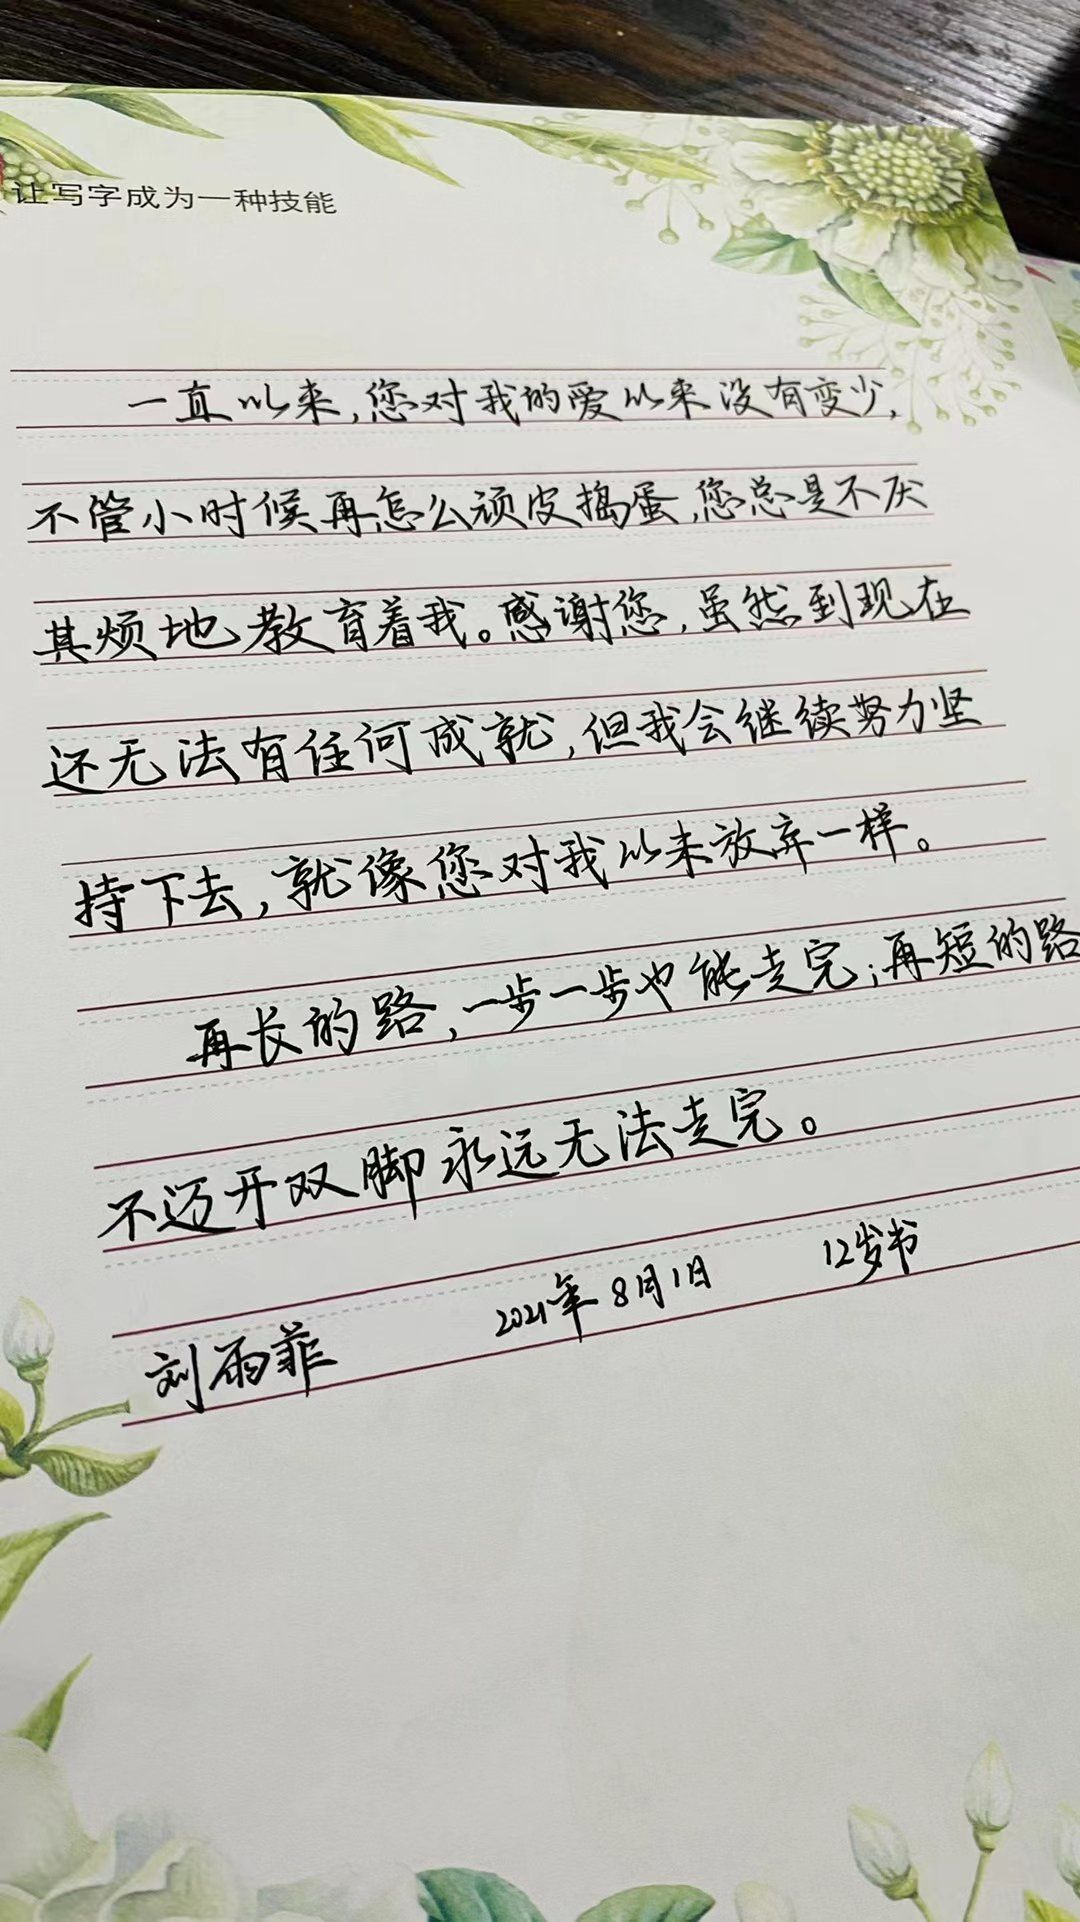 让写字成为一种技能
一直以来,您对我的爱以来没有变少,
不管小时候再怎么顽皮捣蛋,您总是不厌
其烦地教育着我。感谢您,虽然到现在
还无法有任何成就,但我会继续努力坚
持下去,就像您对我以来放弃一样。
再长的路,一步一步也能走完;再短的路
不迈开双脚永远无法走完。
刘雨菲 2021年8月1日 12岁书